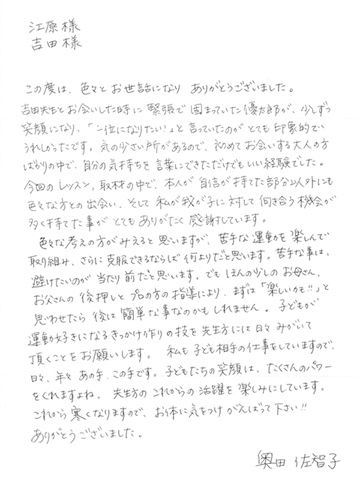 江原様
吉田様
この度は、色々とお世話になり ありがとうございました。
吉田先生とお会いした時に 緊張で固まっていた優太郎が、少しずつ
笑顔になり、「一位になりたい!」と言っていたのがとても印象的で
うれしかったです。気の少さい所があるので、初めてお会いする大人の方
ばかりの中で、自分の気持ちを言葉にできただけでもいい経験でした。
今回のレッスン、取材の中で、本人が自信が持てた部分以外にも
色々な方との出会い、そして私が我が子に対して向き合う機会が
多く持てた事が とてもありがたく感謝しています。
色々な考えの方がみえると思いますが、苦手な運動を楽しんで
取り組み、さらに克服できるならば何よりだと思います。苦手な事は、
避けたいのが当たり前だと思います。でもほんの少しのお母さん、
お父さんの後押しとプロの方の指導により、まずは「楽しいかも!!」と
思わせたら後は簡単な事なのかもしれません。子どもが
運動好きになるきっかけ作りの技を先生方には日々みがいて
頂くことをお願いします。私も子ども相手の仕事をしていますので、
日々、年々あの手、この手です。子どもたちの笑顔は、たくさんのパワー
をくれますよね。先生方のこれからの活躍を楽しみにしています。
これから寒くなりますので、お体に気をつけがんばって下さい!!
ありがとうございました。
奥田 佐智子